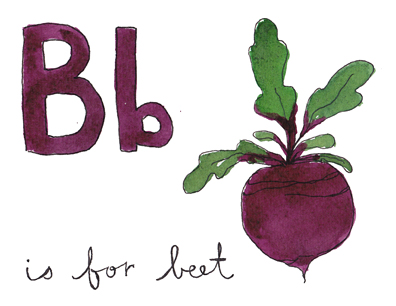 Bb
is for beet